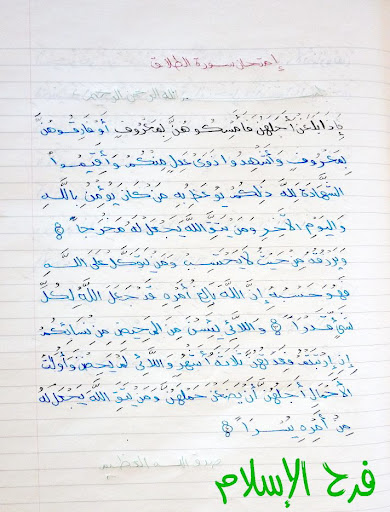 إمتحان سورة الطلاق
الله الرحمن الرحيم
فإذا بلغن أجلهن فأمسكوهن بمعروف أو فارقوهن
بمعروف وأشهدوا ذوى عدل منكم وأقيموا
الشهادة لله ذلكم يوعظ به من كان يؤمن بالله
واليوم الآخر ومن يتق الله يجعل له مخرجا
ويرزقه من حيث لا يحتسب ومن يتوكل على الله
فهو حسبه إن الله بالغ أمره قد جعل الله لكل
شىء قدرا واللائى يئسن من المحيض من نسائكم
إن ارتبتم فعدتهن ثلاثة أشهر واللائى لم يحضن وأولات
الأحمال أجلهن أن يضعن حملهن ومن يتق الله يجعل له
من أمره يسرا
صدق الله العظيم
فرح الإسلام